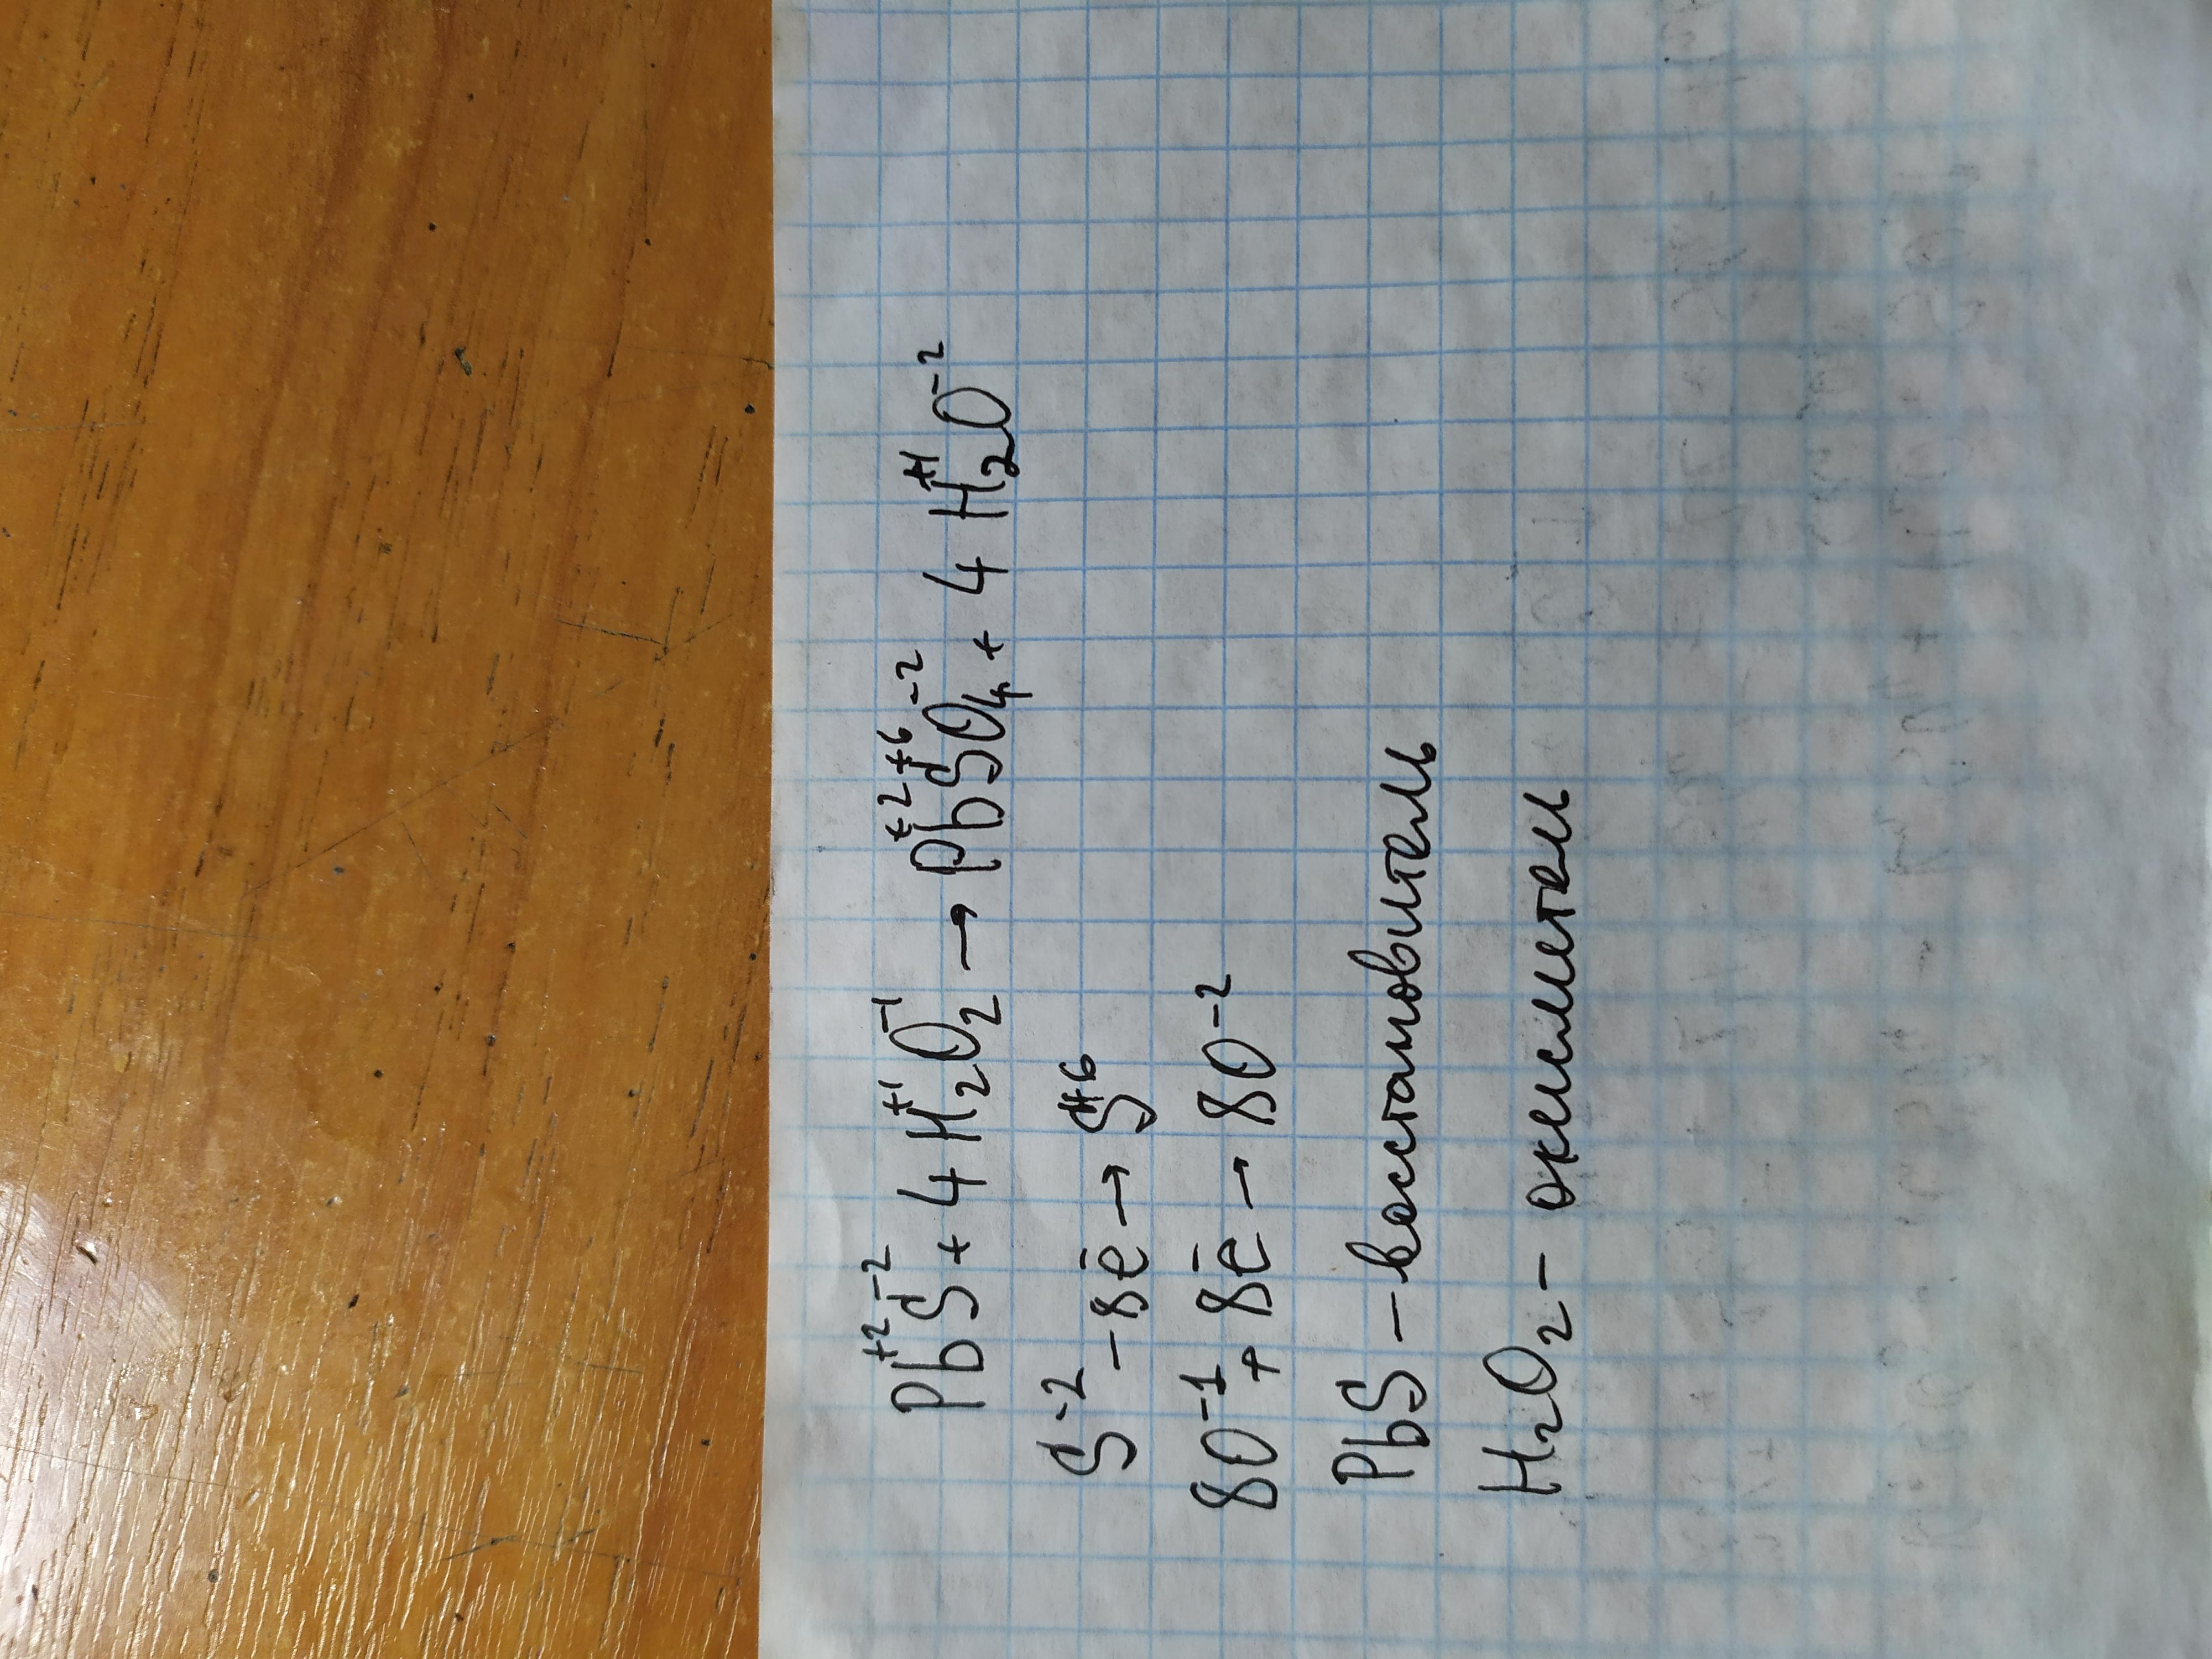 Pb⁺²S⁻² + 4H₂⁺¹O₂⁻¹ → Pb⁺²S⁺⁶O₄⁻² + 4H₂⁺¹O⁻²
S⁻² – 8ē → S⁺⁶
8O⁻¹ + 8ē → 8O⁻²
PbS – восстановитель
H₂O₂ – окислитель